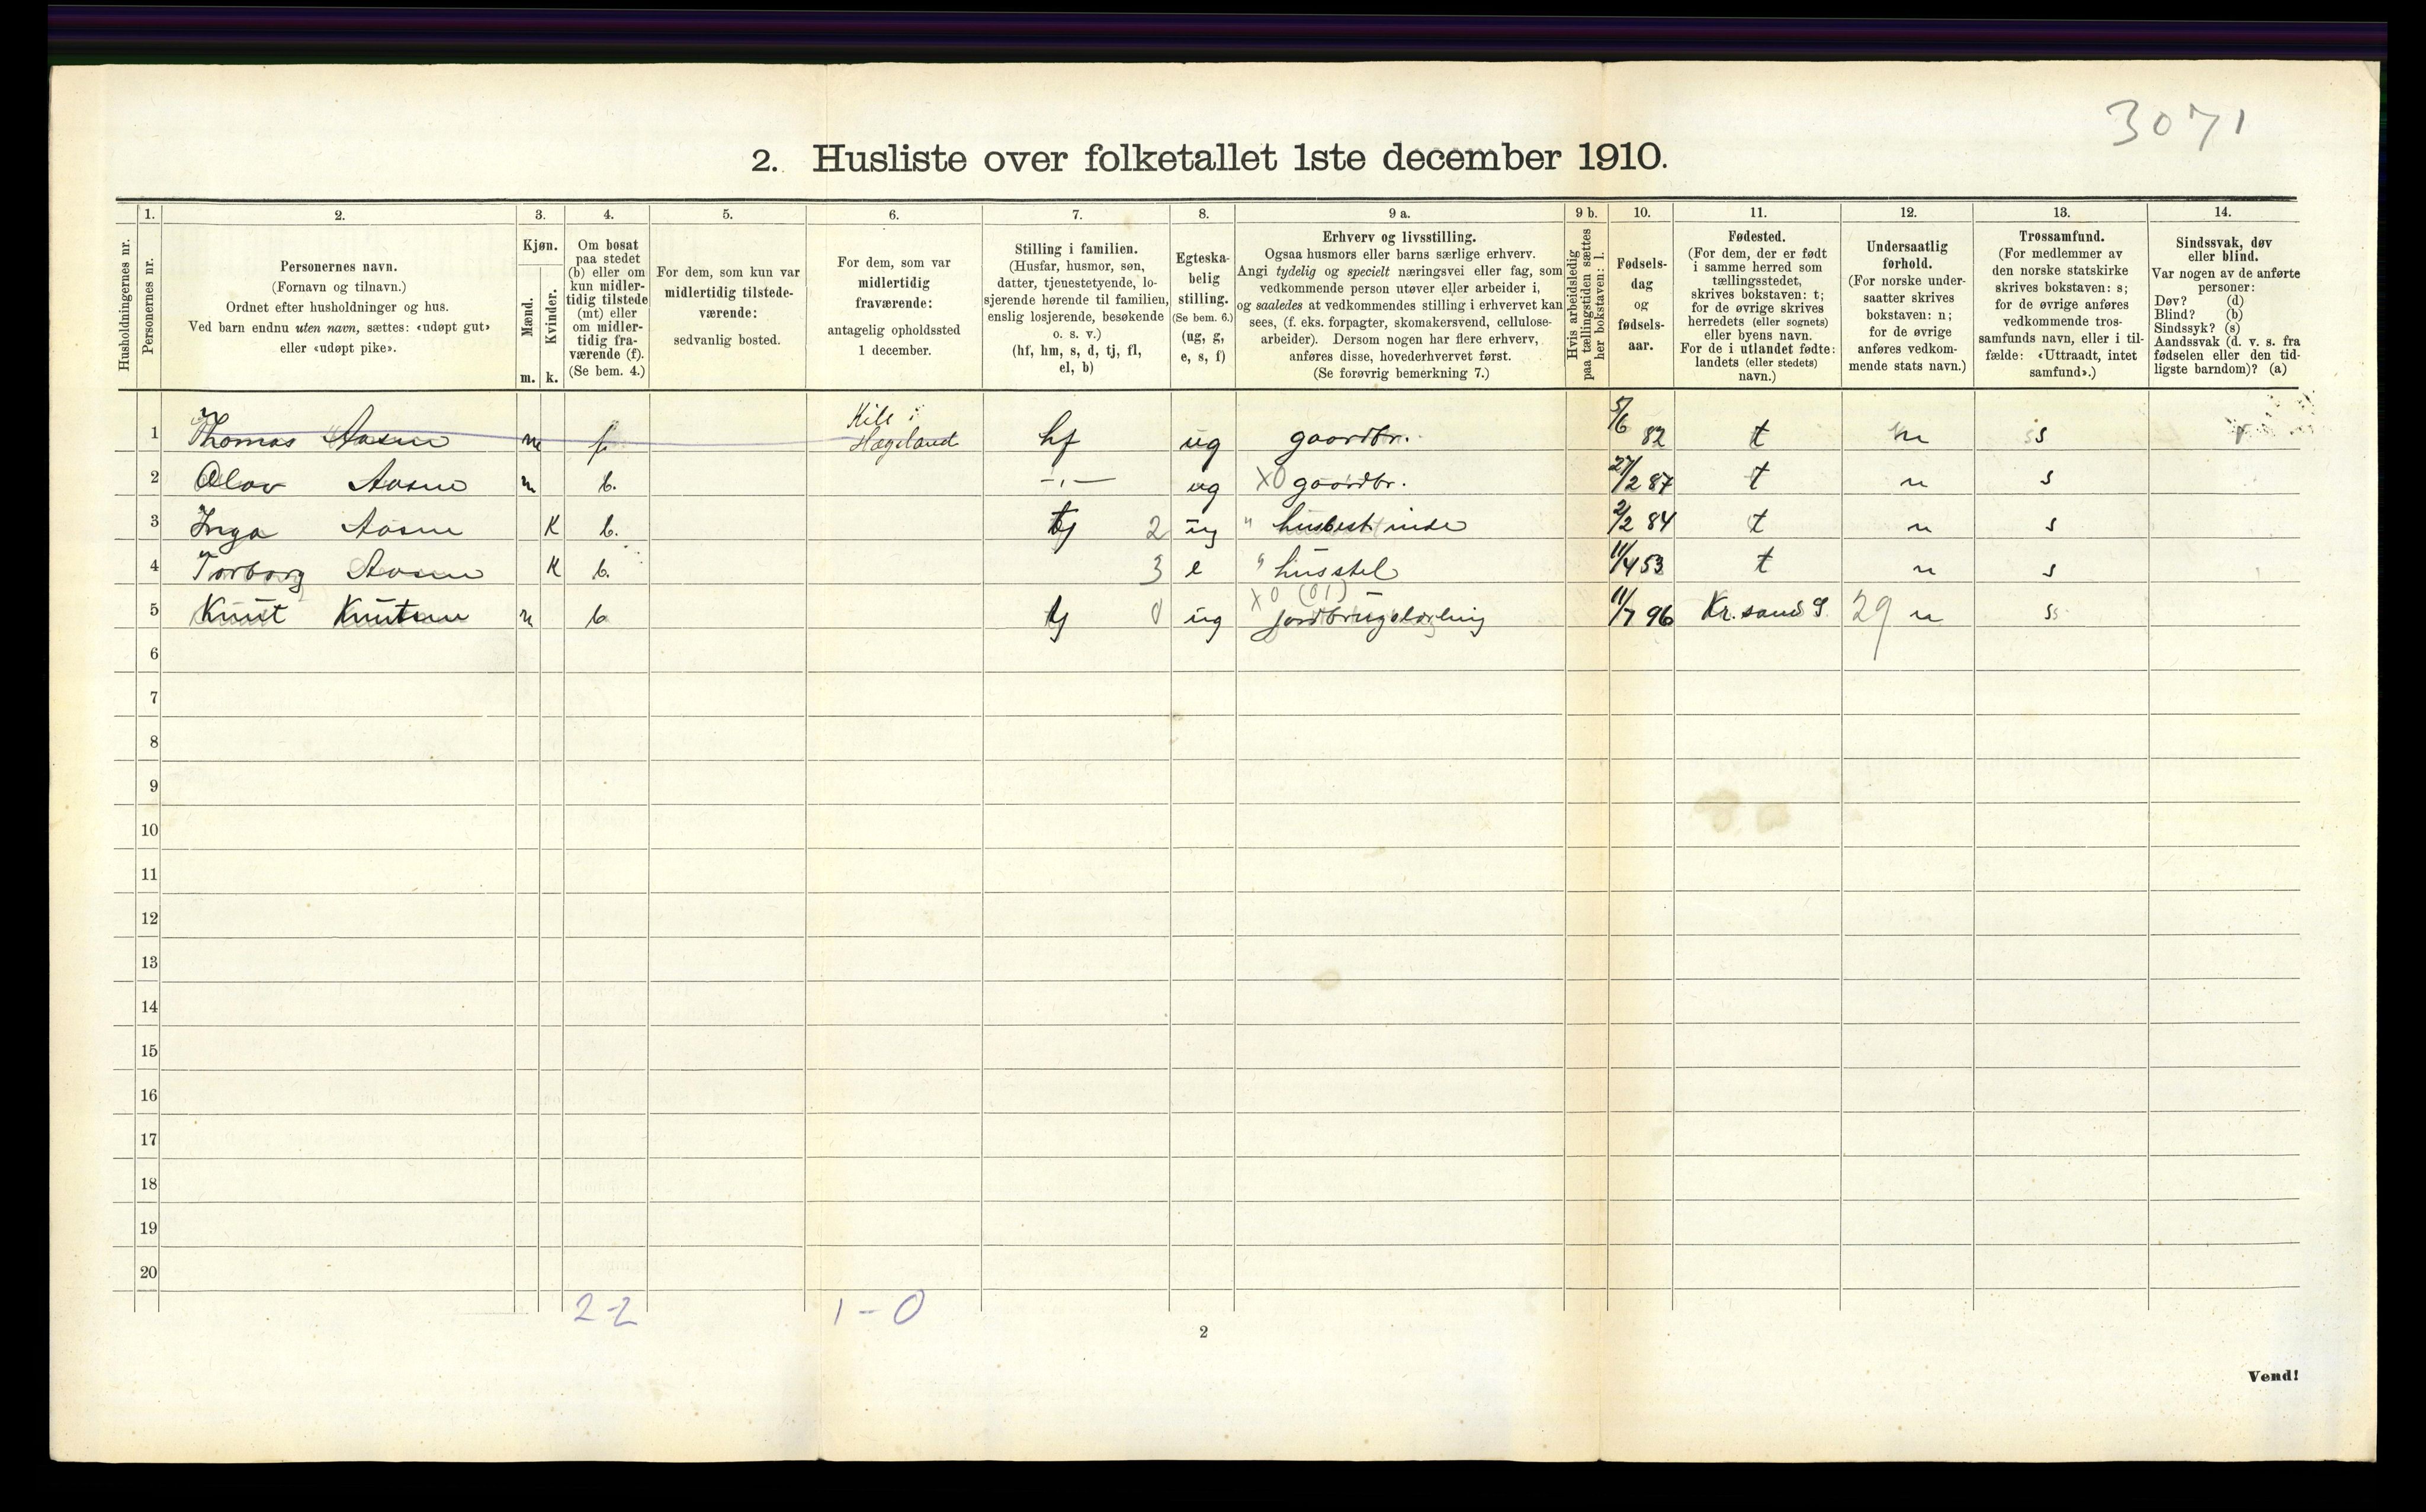 3071
2. Husliste over folketallet 1ste december 1910.
1. 2. 3. 4. 5. 6. 7. 8. 9 a. 9 b. 10. 11. 12. 13. 14.
Husholdningernes nr.
Personernes nr.
Personernes navn.
(Fornavn og tilnavn.)
Ordnet efter husholdninger og hus.
Ved barn endnu uten navn, sættes: «udøpt gut»
eller «udøpt pike».
Kjøn.
Mænd.
Kvinder.
m. k.
Om bosat
paa stedet
(b) eller om
kun midler-
tidig tilstede
(mt) eller
om midler-
tidig fra-
værende (f).
(Se bem. 4.)
For dem, som kun var
midlertidig tilstede-
værende:
sedvanlig bosted.
For dem, som var
midlertidig
fraværende:
antagelig opholdssted
1 december.
Stilling i familien.
(Husfar, husmor, søn,
datter, tjenestetyende, lo-
sjerende hørende til familien,
enslig losjerende, besøkende
o. s. v.)
(hf, hm, s, d, tj, fl,
el, b)
Egteska-
belig
stilling.
(Se bem. 6.)
(ug, g,
e, s, f)
Erhverv og livsstilling.
Ogsaa husmors eller barns særlige erhverv.
Angi tydelig og specielt næringsvei eller fag, som
vedkommende person utøver eller arbeider i,
og saaledes at vedkommendes stilling i erhvervet kan
sees, (f. eks. forpagter, skomakersvend, cellulose-
arbeider). Dersom nogen har flere erhverv,
anføres disse, hovederhvervet først.
(Se forøvrig bemerkning 7.)
Hvis arbeidsledig
paa tællingstiden sættes
her bokstaven: l.
Fødsels-
dag
og
fødsels-
aar.
Fødested.
(For dem, der er født
i samme herred som
tællingsstedet,
skrives bokstaven: t;
for de øvrige skrives
herredets (eller sognets)
eller byens navn.
For de i utlandet fødte:
landets (eller stedets)
navn.)
Undersaatlig
forhold.
(For norske under-
saatter skrives
bokstaven: n;
for de øvrige
anføres vedkom-
mende stats navn.)
Trossamfund.
(For medlemmer av
den norske statskirke
skrives bokstaven: s;
for de øvrige anføres
vedkommende tros-
samfunds navn, eller i til-
fælde: «Uttraadt, intet
samfund».)
Sindssvak, døv
eller blind.
Var nogen av de anførte
personer:
Døv? (d)
Blind? (b)
Sindssyk? (s)
Aandssvak (d. v. s. fra
fødselen eller den tid-
ligste barndom)? (a)
1 Thomas Aasen m f Kile i Hægeland hf ug gaardbr. 5/6 82 t n s
2 Olav Aasen m b. —„— ug X0 gaardbr. 27/2 87 t n s
3 Inga Aasen K b. tj 2 ug " husbest inde 2/2 84 t n s
4 Torborg Aasen K b. 3 e " husstel 11/4 53 t n s
5 Knut Knutsen m b tj 0 ug X0 (01) jordbrugslærling 11/7 96 Kr.sand S. 29 n s
6
7
8
9
10
11
12
13
14
15
16
17
18
19
20
2-2 1-0
2
Vend!